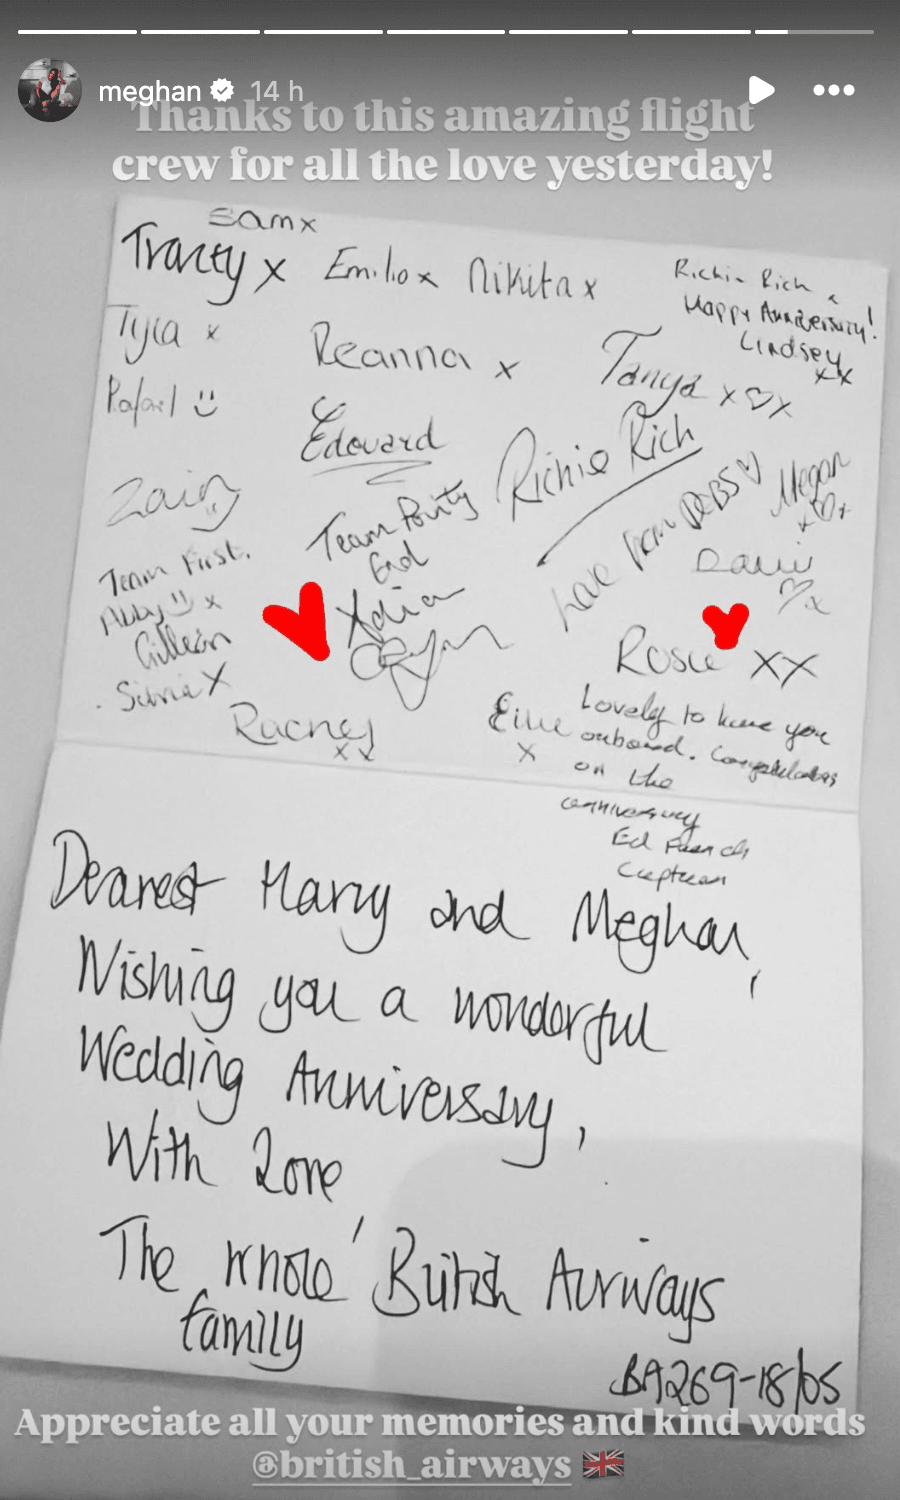 meghan 14 h
Thanks to this amazing flight
crew for all the love yesterday!
Sam x
Tracey x
Emilio x
Nikita x
Richie Rich x
Happy Anniversary!
Lindsey
xx
Tyla x
Reanna x
Tanya x♡x
Rafael
Edouard
Richie Rich
Zain
Team Purity
End
Love from DEBS ♡
Megan
x♡x
♡x
Team First.
Abby x
Gillean
Silvia X
Ryan
Rosie XX
Rachel
xx
x
Lovely to have you
onboard. Congratulations
on the
anniversary
Ed French
Captain
Dearest Harry and Meghan,
Wishing you a wonderful
Wedding Anniversary,
With Love
The whole British Airways
family
BA269-18/05
Appreciate all your memories and kind words
@british_airways 🇬🇧